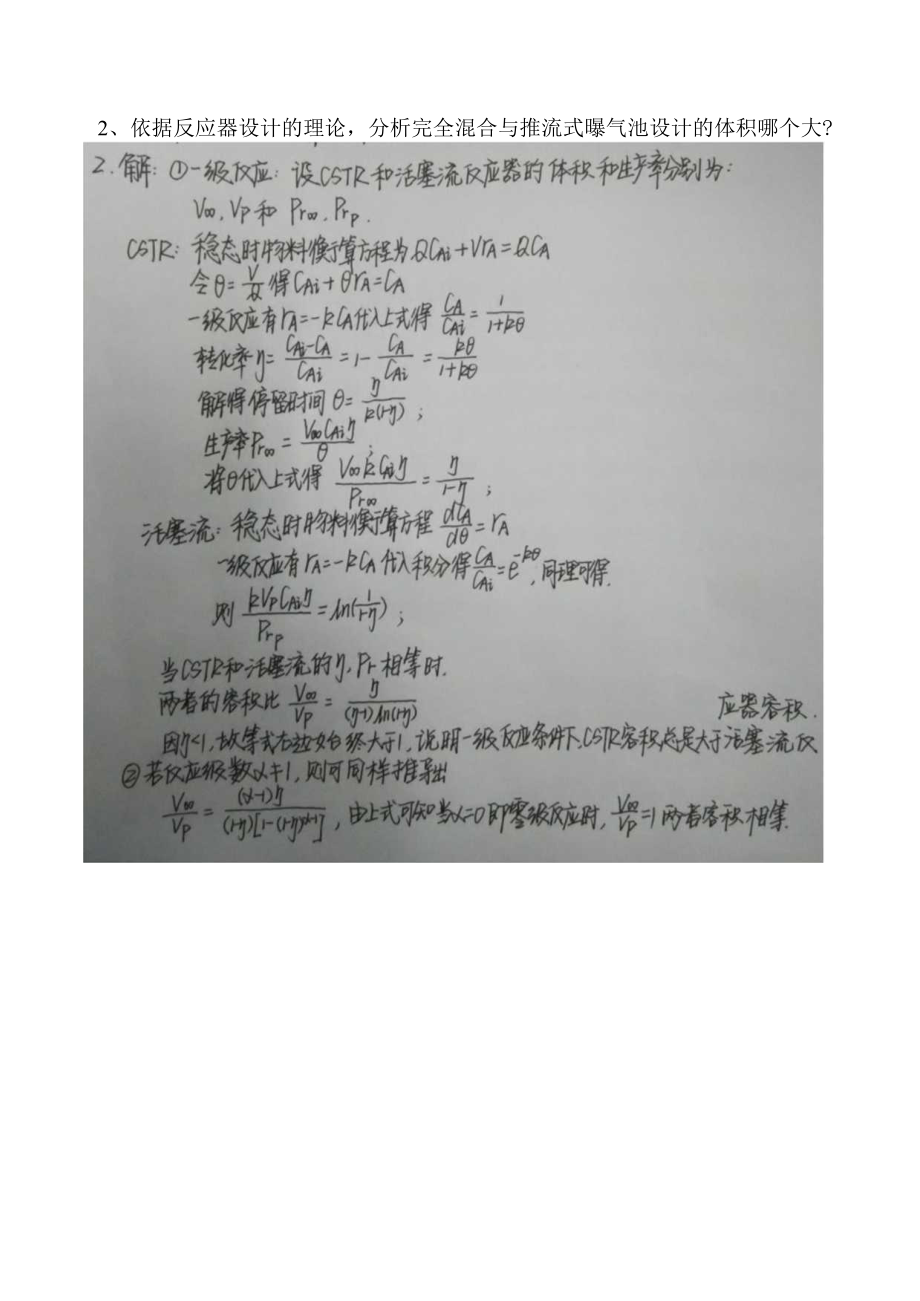 2、依据反应器设计的理论，分析完全混合与推流式曝气池设计的体积哪个大?
2.解: ①一级反应: 设CSTR和活塞流反应器的体积和生产率分别为:
V∞, Vp和 Pr∞, Prp.
CSTR: 稳态时物料衡算方程为QCAi+VrA=QCA
令θ=V/Q得CAi+θrA=CA
一级反应有rA=-kCA代入上式得 CA/CAi=1/(1+kθ)
转化率η=(CAi-CA)/CAi=1-CA/CAi=kθ/(1+kθ)
解得停留时间θ=η/(k(1-η));
生产率Pr∞=V∞CAiη/θ;
将θ代入上式得 V∞kCAiη/Pr∞=η/(1-η);
活塞流: 稳态时物料衡算方程 dCA/dθ=rA
一级反应有rA=-kCA代入积分得CA/CAi=e^(-kθ), 同理可得.
则 kVpCAiη/Prp=ln(1/(1-η));
当CSTR和活塞流的η, Pr相等时.
两者的容积比 V∞/Vp=η/((η-1)ln(1-η))
应器容积.
因η<1, 故等式右边始终大于1, 说明一级反应条件下CSTR容积总是大于活塞流反
②若反应级数α≠1, 则可同样推导出
V∞/Vp=(α-1)η/((1-η)[1-(1-η)^(α-1)]), 由上式可知当α=0即零级反应时, V∞/Vp=1两者容积相等.